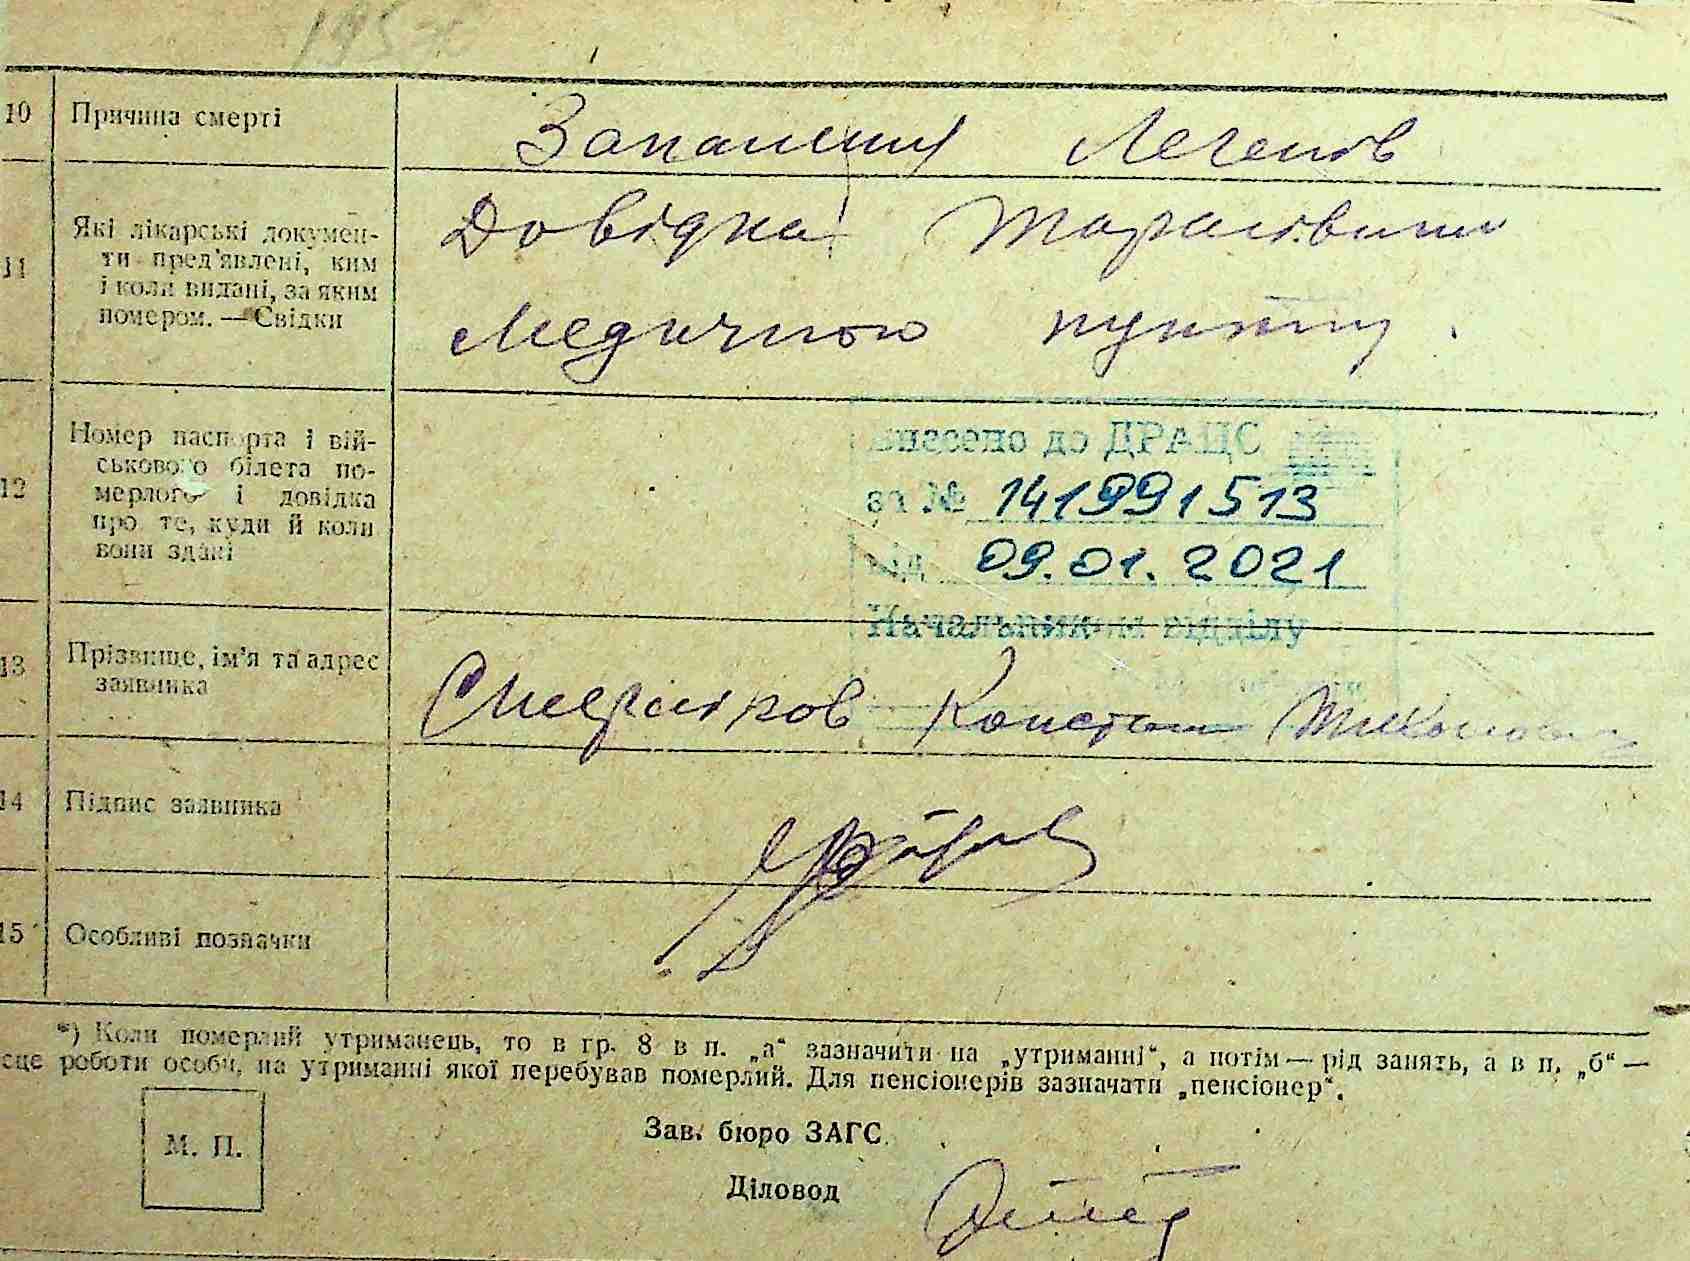 10 Причина смерті Запалення Легенів
11 Які лікарські докумен-
ти пред'явлені, ким
і коли видані, за яким
номером. — Свідки
Довідка
Медичного пункту.
12 Номер паспорта і вій-
ськового білета по-
мерлого і довідка
про те, куди й коли
вони здані
Внесено до ДРАЦС
за № 141991513
від 09.01.2021
Начальник відділу
13 Прізвище, ім'я та адрес
заявника
14 Підпис заявника
15 Особливі позначки
*) Коли померлий утриманець, то в гр. 8 в п. „а“ зазначити на „утриманні“, а потім — рід занять, а в п. „б“ —
сце роботи особи, на утриманні якої перебував померлий. Для пенсіонерів зазначати „пенсіонер“.
М. П.
Зав. бюро ЗАГС
Діловод